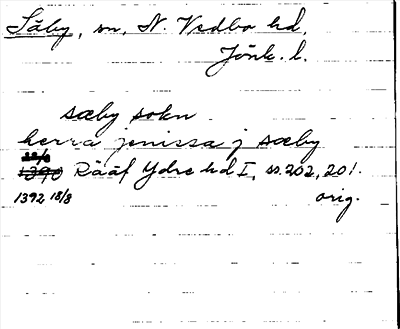 Säby, sn, N. Vedbo hd,
Jönk. l.
sæby sokn
herra jenissa j sæby
Rääf Ydre hd I, ss. 202, 201.
1392 18/8 orig.